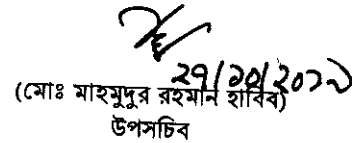 ২৭/১০/২০১১
(মোঃ মাহমুদুর রহমান হাবিব)
উপসচিব